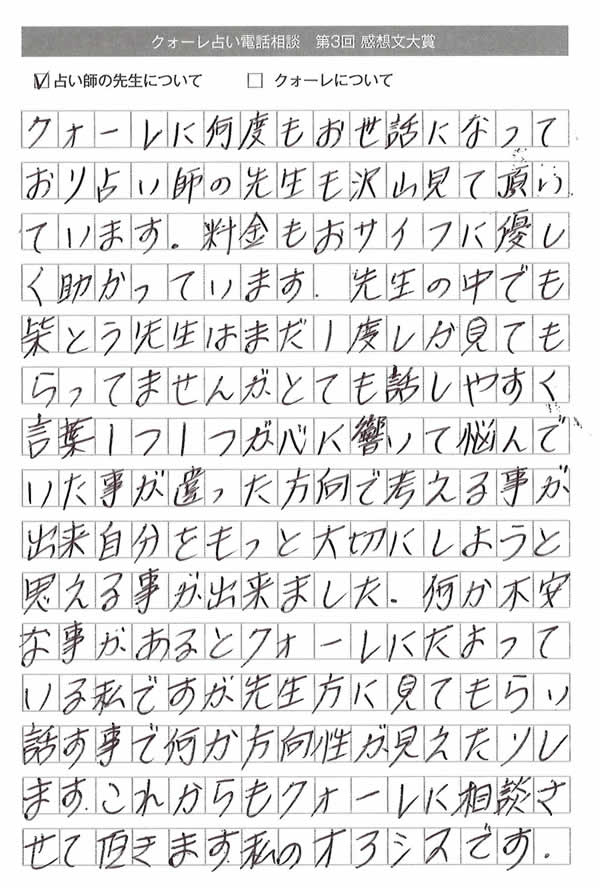 クォーレ占い電話相談 第3回 感想文大賞
占い師の先生について クォーレについて
クォーレに何度もお世話になって
おり占い師の先生も沢山見て頂い
ています。料金もおサイフに優し
く助かっています.先生の中でも
柴とう先生はまだ1度しか見ても
らってませんがとても話しやすく
言葉1つ1つが心に響いて悩んで
いた事が違った方向で考える事が
出来自分をもっと大切にしようと
思える事が出来ました.何か不安
な事があるとクォーレにたよって
いる私ですが先生方に見てもらい
話す事で何か方向性が見えたりし
ます.これからもクォーレに相談さ
せて頂きます.私のオアシスです.